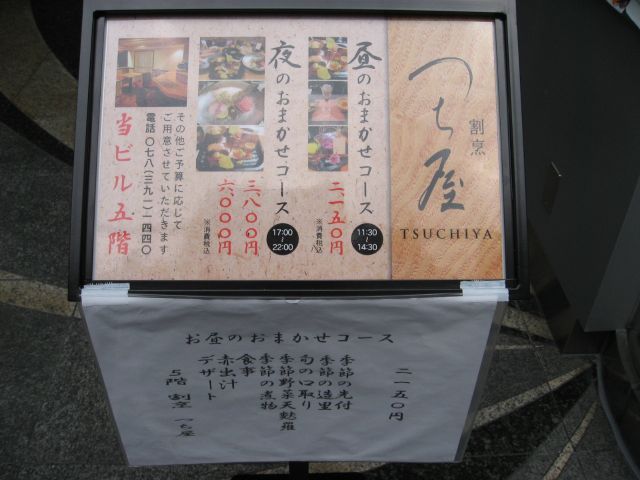 割烹
つち屋
TSUCHIYA
昼のおまかせコース
11:30
~
14:30
二一五〇円
※消費税込
夜のおまかせコース
17:00
~
22:00
三八〇〇円
六〇〇〇円
※消費税込
その他ご予算に応じて
ご用意させていただきます
電話 〇七八(三九一)一四四〇
当ビル五階
お昼のおまかせコース
二一五〇円
季節の先付
季節の造里
旬の口取り
季節野菜天麩羅
季節の煮物
食事
赤出汁
デザート
5階 割烹 つち屋